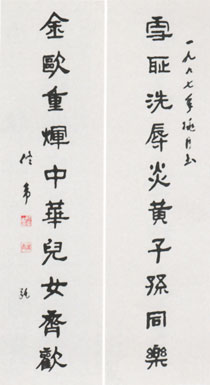 一九八七年
雪耻洗辱炎黃子孫同樂
金歐重煇中華兒女齊歡